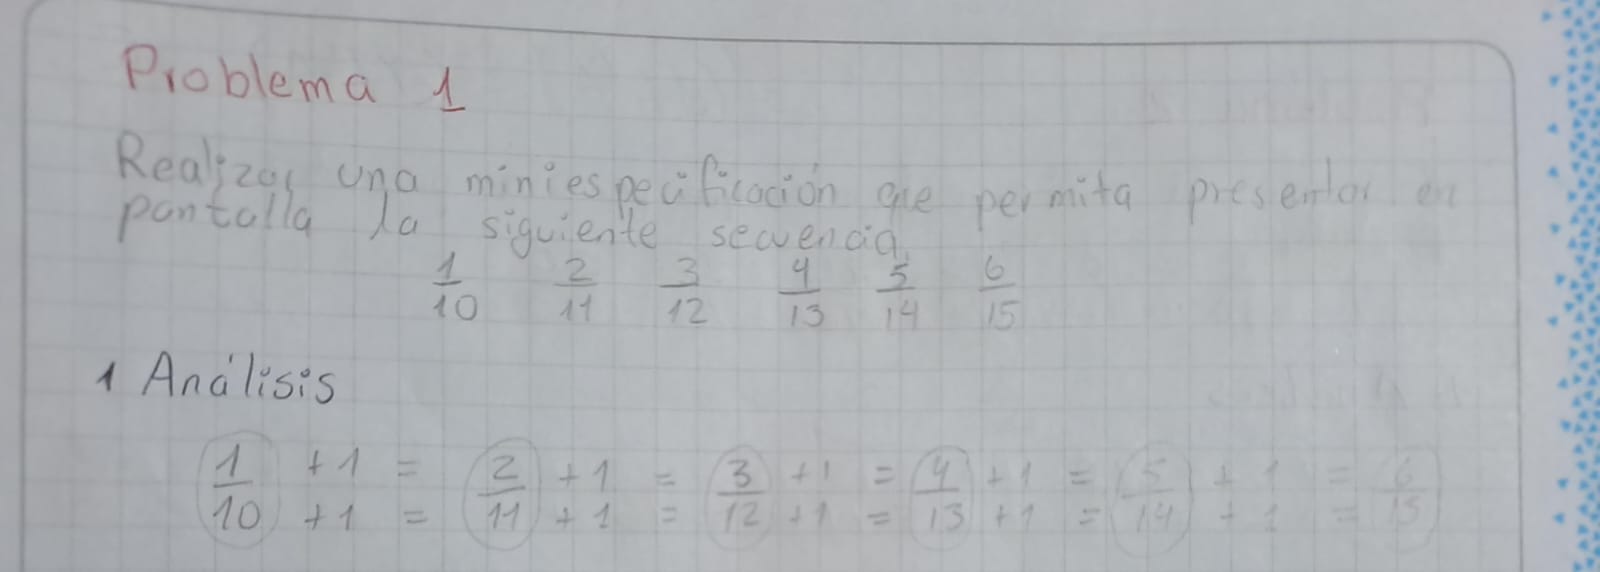 Problema 1
Realizar una miniespecificación que permita presentar en
pantalla la siguiente secuencia.
1/10 2/11 3/12 4/13 5/14 6/15
1 Análisis
1 +1 = 2 +1 = 3 +1 = 4 +1 = 5 +1 = 6
10 +1 = 11 +1 = 12 +1 = 13 +1 = 14 +1 = 15